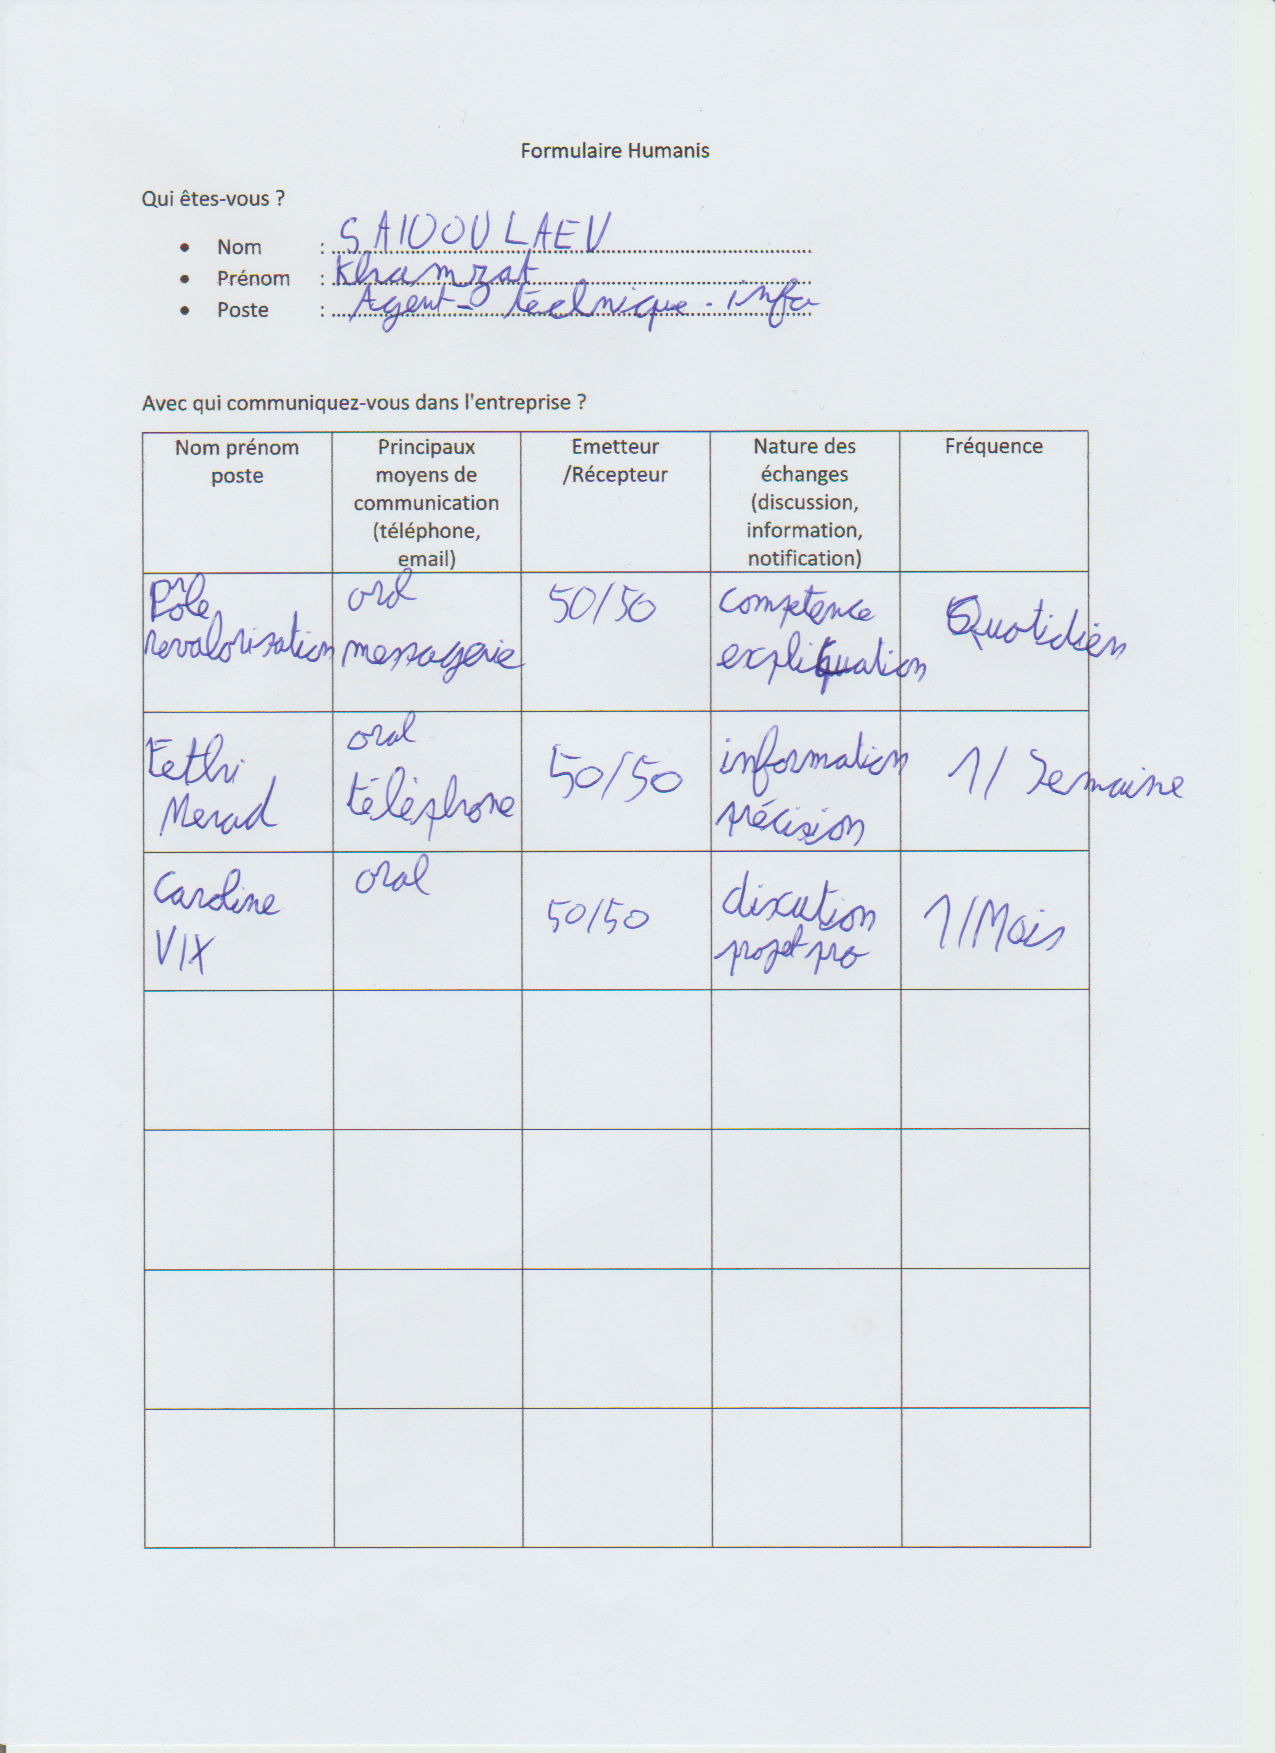 Formulaire Humanis
Qui êtes-vous ?
• Nom : SAIDOULAEV
• Prénom : Khamzat
• Poste : Agent technique info
Avec qui communiquez-vous dans l'entreprise ?
Nom prénom
poste
Principaux
moyens de
communication
(téléphone,
email)
Emetteur
/Récepteur
Nature des
échanges
(discussion,
information,
notification)
Fréquence
Pôle
revalorisation
oral
messagerie
50/50
competence
expliquation
Quotidien
Fethi
Merad
oral
téléphone
50/50
information
précision
1/ Semaine
Caroline
VIX
oral
50/50
discution
projet pro
1/Mois